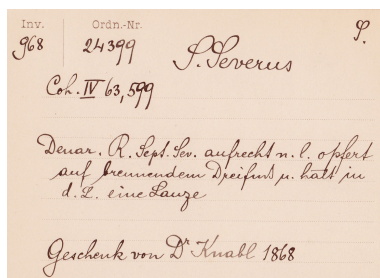 Inv. Ordn.-Nr. S.
968 24399
S. Severus
Coh. IV 63,599
Denar. R. Sept. Sev. aufrecht n. l. opfert
auf brennendem Dreifuß u. hält in
d. L. eine Lanze
Geschenk von Dr Knabl 1868